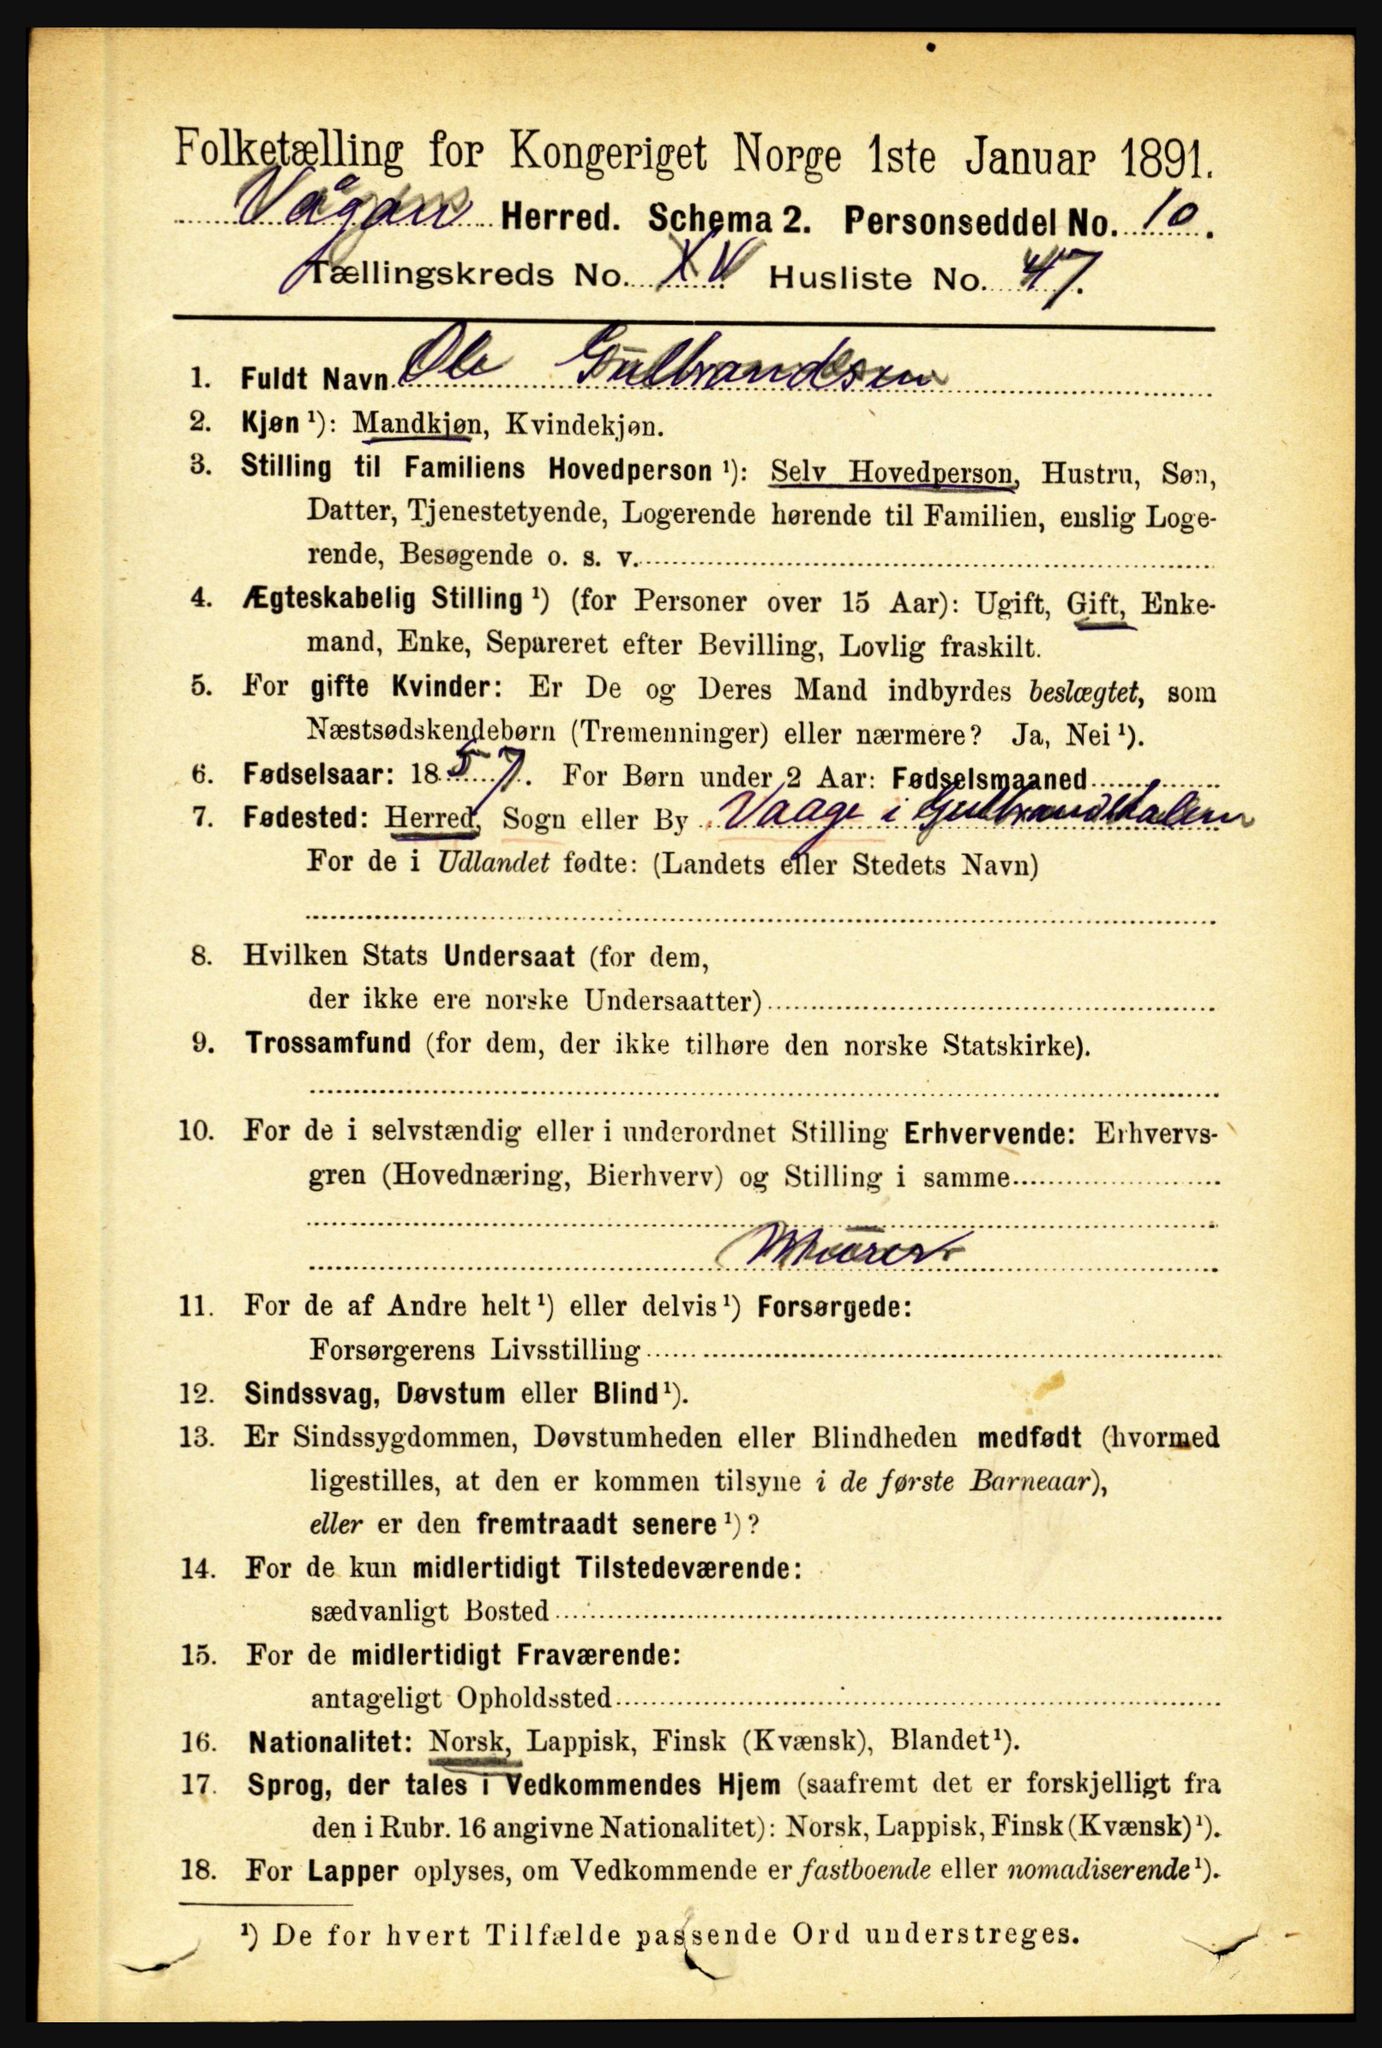 Folketælling for Kongeriget Norge 1ste Januar 1891.
Vågan Herred. Schema 2. Personseddel No. 10.
Tællingskreds No. XV Husliste No. 47.
1. Fuldt Navn Ole Gulbrandsen
2. Kjøn ¹): Mandkjøn, Kvindekjøn.
3. Stilling til Familiens Hovedperson ¹): Selv Hovedperson, Hustru, Søn,
Datter, Tjenestetyende, Logerende hørende til Familien, enslig Loge-
rende, Besøgende o. s. v.
4. Ægteskabelig Stilling ¹) (for Personer over 15 Aar): Ugift, Gift, Enke-
mand, Enke, Separeret efter Bevilling, Lovlig fraskilt.
5. For gifte Kvinder: Er De og Deres Mand indbyrdes beslægtet, som
Næstsødskendebørn (Tremenninger) eller nærmere? Ja, Nei ¹).
6. Fødselsaar: 1857. For Børn under 2 Aar: Fødselsmaaned
7. Fødested: Herred, Sogn eller By Vaage i Gulbrandsdalen
For de i Udlandet fødte: (Landets eller Stedets Navn)
8. Hvilken Stats Undersaat (for dem,
der ikke ere norske Undersaatter)
9. Trossamfund (for dem, der ikke tilhøre den norske Statskirke).
10. For de i selvstændig eller i underordnet Stilling Erhvervende: Erhvervs-
gren (Hovednæring, Bierhverv) og Stilling i samme
Murer
11. For de af Andre helt ¹) eller delvis ¹) Forsørgede:
Forsørgerens Livsstilling
12. Sindssvag, Døvstum eller Blind ¹).
13. Er Sindssygdommen, Døvstumheden eller Blindheden medfødt (hvormed
ligestilles, at den er kommen tilsyne i de første Barneaar),
eller er den fremtraadt senere ¹)?
14. For de kun midlertidigt Tilstedeværende:
sædvanligt Bosted
15. For de midlertidigt Fraværende:
antageligt Opholdssted
16. Nationalitet: Norsk, Lappisk, Finsk (Kvænsk), Blandet ¹).
17. Sprog, der tales i Vedkommendes Hjem (saafremt det er forskjelligt fra
den i Rubr. 16 angivne Nationalitet): Norsk, Lappisk, Finsk (Kvænsk) ¹).
18. For Lapper oplyses, om Vedkommende er fastboende eller nomadiserende ¹).
¹) De for hvert Tilfælde passende Ord understreges.